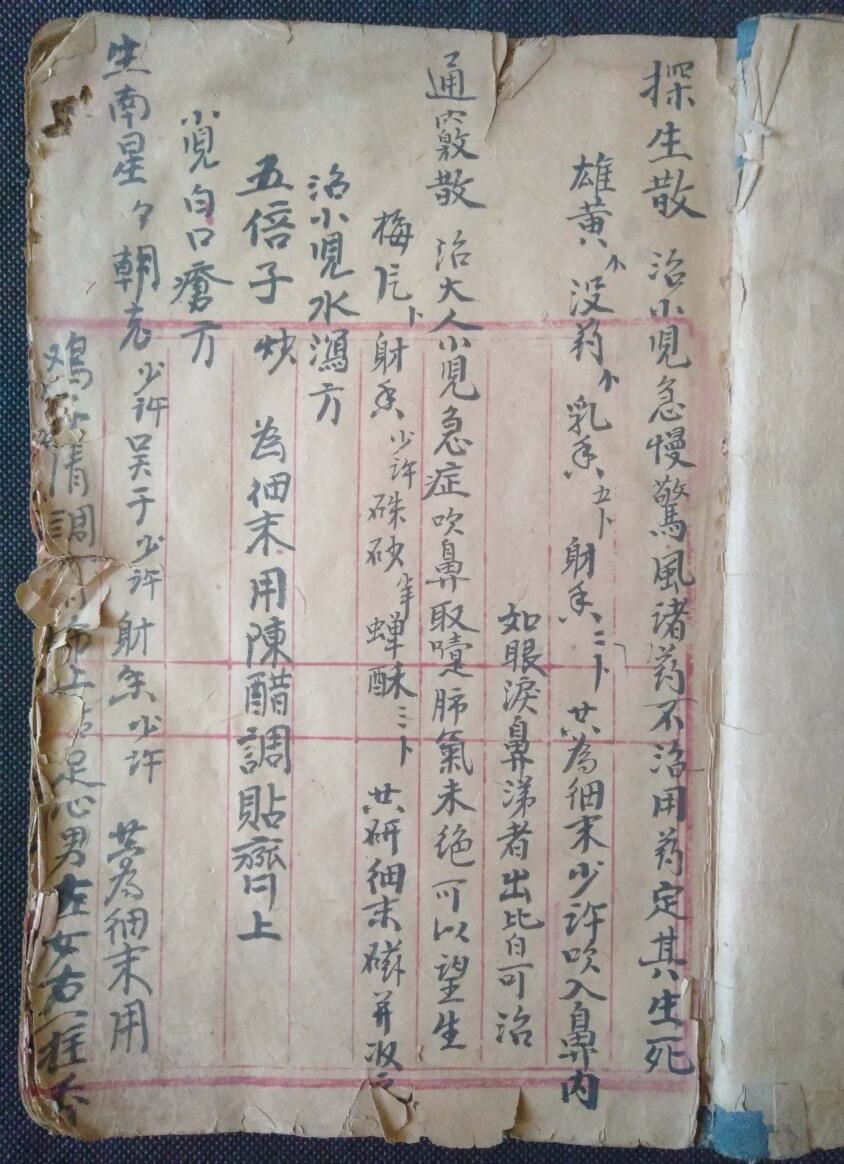 探生散 治小児急慢驚風诸药不治用药定其生死
雄黄 没药 乳香五卜 射香二卜 共為细末少许吹入鼻内
如眼淚鼻涕者出比自可治
通竅散 治大人小児急症吹鼻取嚏肺氣未绝可以望生
梅片卜 射香少许 硃砂 蝉酥三卜 共研细末磁并收之
治小児水瀉方
五倍子炒 為细末用陳醋調貼臍上
小児白口瘡方
生南星 朝 少许吴于少许 射香少许 共為细末用
鸡 清調 布上 足心男左女右一柱香